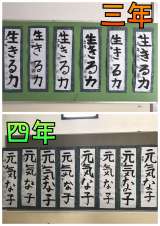 三年
生きる力
生きる力
生きる力
生きる力
生きる力
生きる力
四年
元気な子
元気な子
元気な子
元気な子
元気な子
元気な子
元気な子